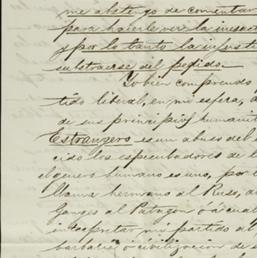 me abstengo de comentar
para hacerle ver la inexac
y por lo tanto la injusti
substraerse del pedido.
Yo bien comprendo
tido liberal, en mi esfera, a
de sus principios humanit
Estrangero es un abuso del
cido los especuladores de l
el género humano es uno, por l
llama hermano al Ruso, a
Ganges al Patagon ó á cual
interpretar mi partido al
barbarie ó civilizacion de